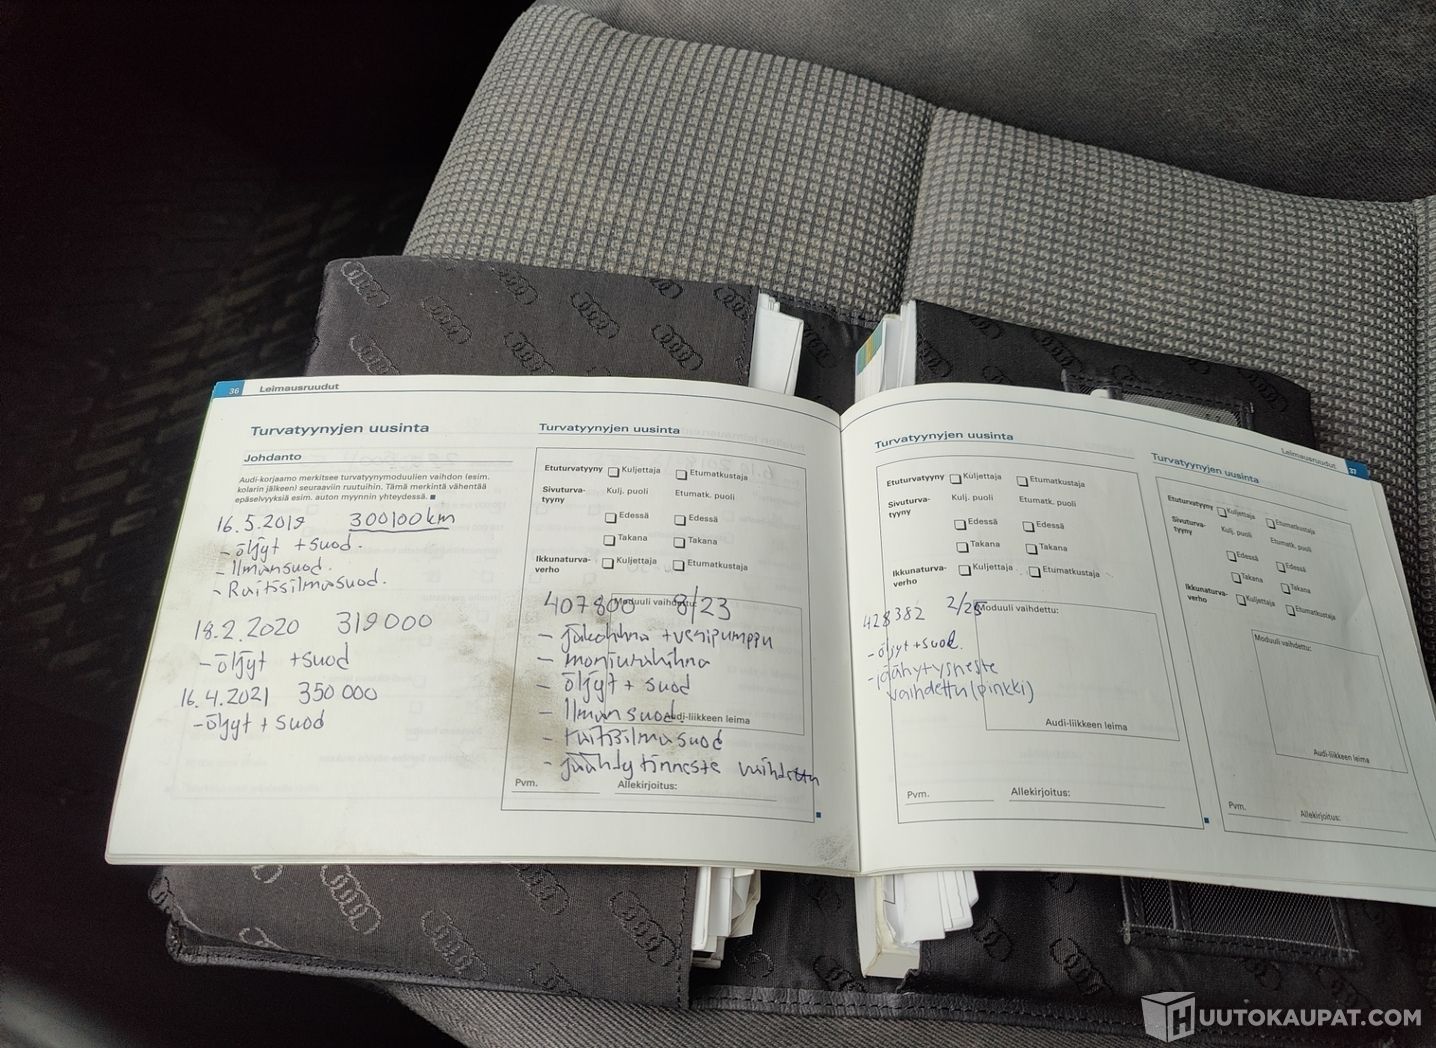 36 Leimausruudut
Turvatyynyjen uusinta
Johdanto
Audi-korjaamo merkitsee turvatyynymoduulien vaihdon (esim.
kolarin jälkeen) seuraaviin ruutuihin. Tämä merkintä vähentää
epäselvyyksiä esim. auton myynnin yhteydessä.
16.5.2019 300100km
- öljyt + suod.
- Ilmansuod.
- Raitisilmasuod.
18.2.2020 319000
- öljyt + suod
16.4.2021 350 000
- öljyt + suod
Turvatyynyjen uusinta
Etuturvatyyny Kuljettaja Etumatkustaja
Sivuturva-
tyyny
Kulj. puoli Etumatk. puoli
Edessä Edessä
Takana Takana
Ikkunaturva-
verho
Kuljettaja Etumatkustaja
Moduuli vaihdettu:
407800 8/23
- jakohihna + vesipumppu
- moniurahihna
- öljyt + suod
- Ilmansuod.
Audi-liikkeen leima
- raitisilmasuod
- jäähdytinneste vaihdettu
Pvm. Allekirjoitus:
Leimausruudut 37
Turvatyynyjen uusinta
Etuturvatyyny Kuljettaja Etumatkustaja
Sivuturva-
tyyny
Kulj. puoli Etumatk. puoli
Edessä Edessä
Takana Takana
Ikkunaturva-
verho
Kuljettaja Etumatkustaja
Moduuli vaihdettu:
428382 2/25
- öljyt + suod.
- jäähytysneste
vaihdettu (pinkki)
Audi-liikkeen leima
Pvm. Allekirjoitus:
Turvatyynyjen uusinta
Etuturvatyyny Kuljettaja Etumatkustaja
Sivuturva-
tyyny
Kulj. puoli Etumatk. puoli
Edessä Edessä
Takana Takana
Ikkunaturva-
verho
Kuljettaja Etumatkustaja
Moduuli vaihdettu:
Audi-liikkeen leima
Pvm. Allekirjoitus:
HUUTOKAUPAT.COM